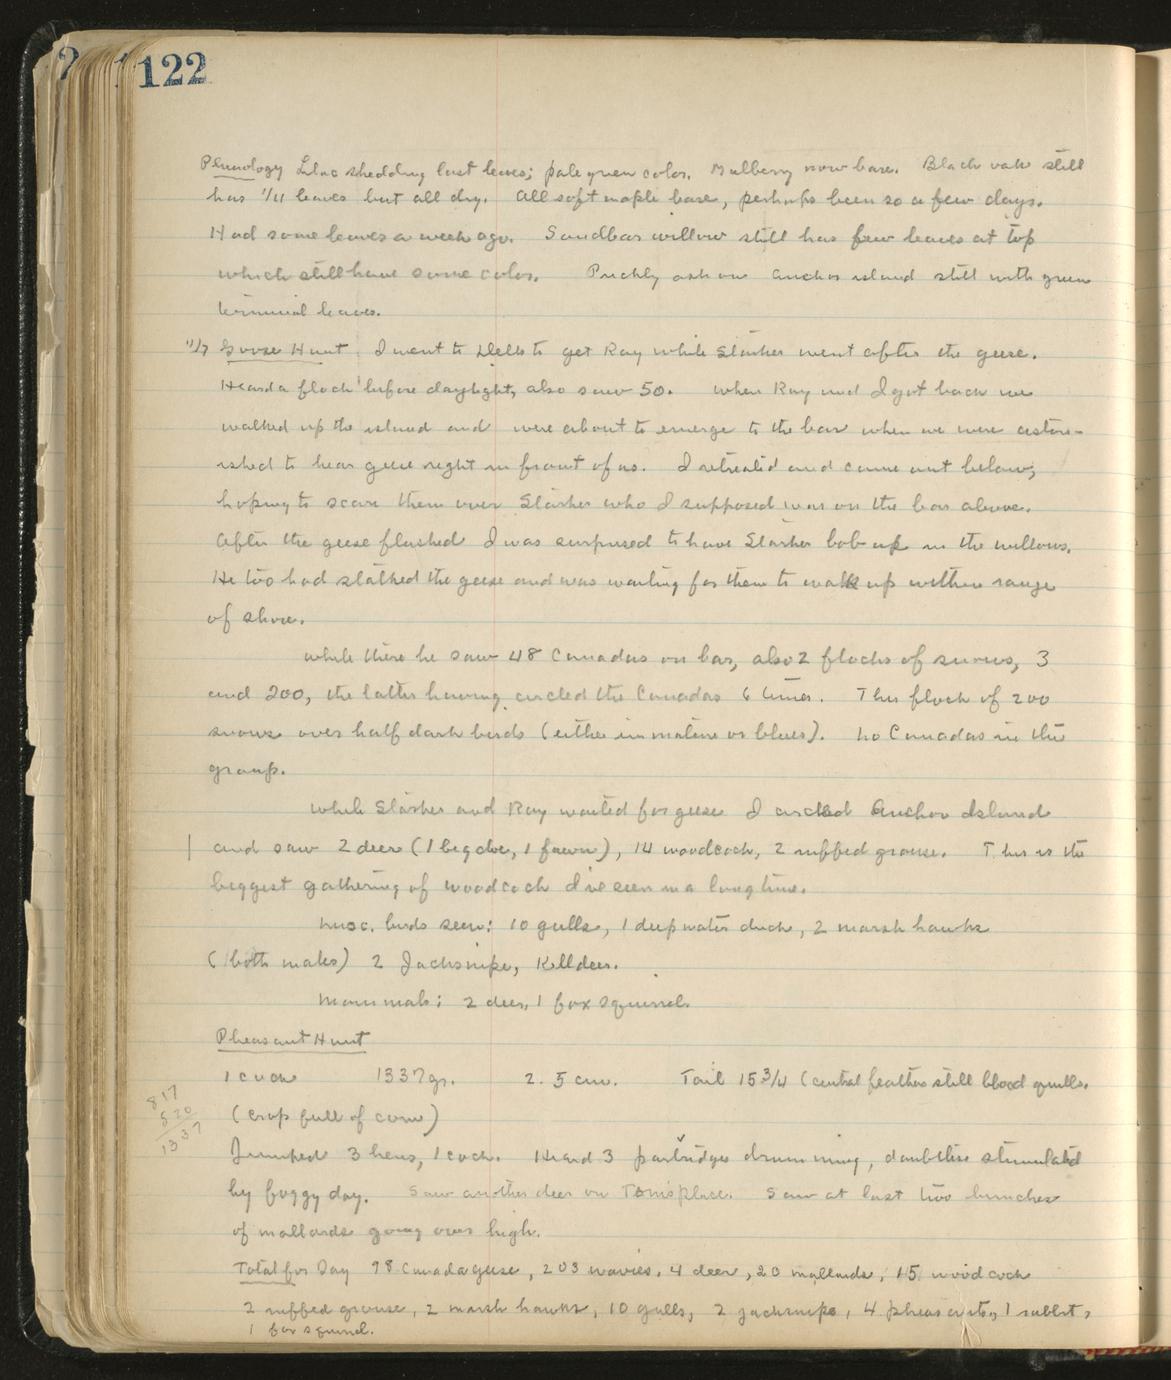 122
Phenology Lilac shedding last leaves; pale green color. Mulberry now bare. Black oak still
has 1/4 leaves but all dry. All soft maple bare, perhaps been so a few days.
Had some leaves a week ago. Sandbar willow still has few leaves at top
which still have some color. Prickly ash on Anchor island still with green
terminal leaves.
11/7 Goose Hunt I went to Dells to get Ray while Starker went after the geese.
Heard a flock before daylight, also saw 50. When Ray and I got back we
walked up the island and were about to emerge to the bar when we were aston-
ished to hear geese right in front of us. I retreated and came out below,
hoping to scare them over Starker who I supposed was on the bar above.
After the geese flushed I was surprised to have Starker bob up in the willows.
He too had stalked the geese and was waiting for them to walk up within range
of shore.
While there he saw 48 Canadas on bar, also 2 flocks of snows, 3
and 200, the latter having circled the Canadas 6 times. This flock of 200
snows over half dark birds (either immature or blues). No Canadas in this
group.
While Starker and Ray waited for geese I circled Anchor Island
and saw 2 deer (1 big doe, 1 fawn), 14 woodcock, 2 ruffed grouse. This is the
biggest gathering of woodcock I've seen in a long time.
Misc. birds seen: 10 gulls, 1 deep water duck, 2 marsh hawks
(both males) 2 Jacksnipe, Killdeer.
Mammals: 2 deer, 1 fox squirrel.
Pheasant Hunt
1 cock 1337 gr. 2.5 cm. Tail 15 3/4 (central feathers still blood quills.
817
520
1337
(Crop full of corn)
Jumped 3 hens, 1 cock. Heard 3 partridges drumming, doubtless stimulated
by foggy day. Saw another deer on Tom's place. Saw at last two bunches
of mallards going over high.
Total for Day 98 Canada geese, 203 wavies, 4 deer, 20 mallards, 15 woodcock
2 ruffed grouse, 2 marsh hawks, 10 gulls, 2 jacksnipe, 4 pheasants, 1 rabbit,
1 fox squirrel.